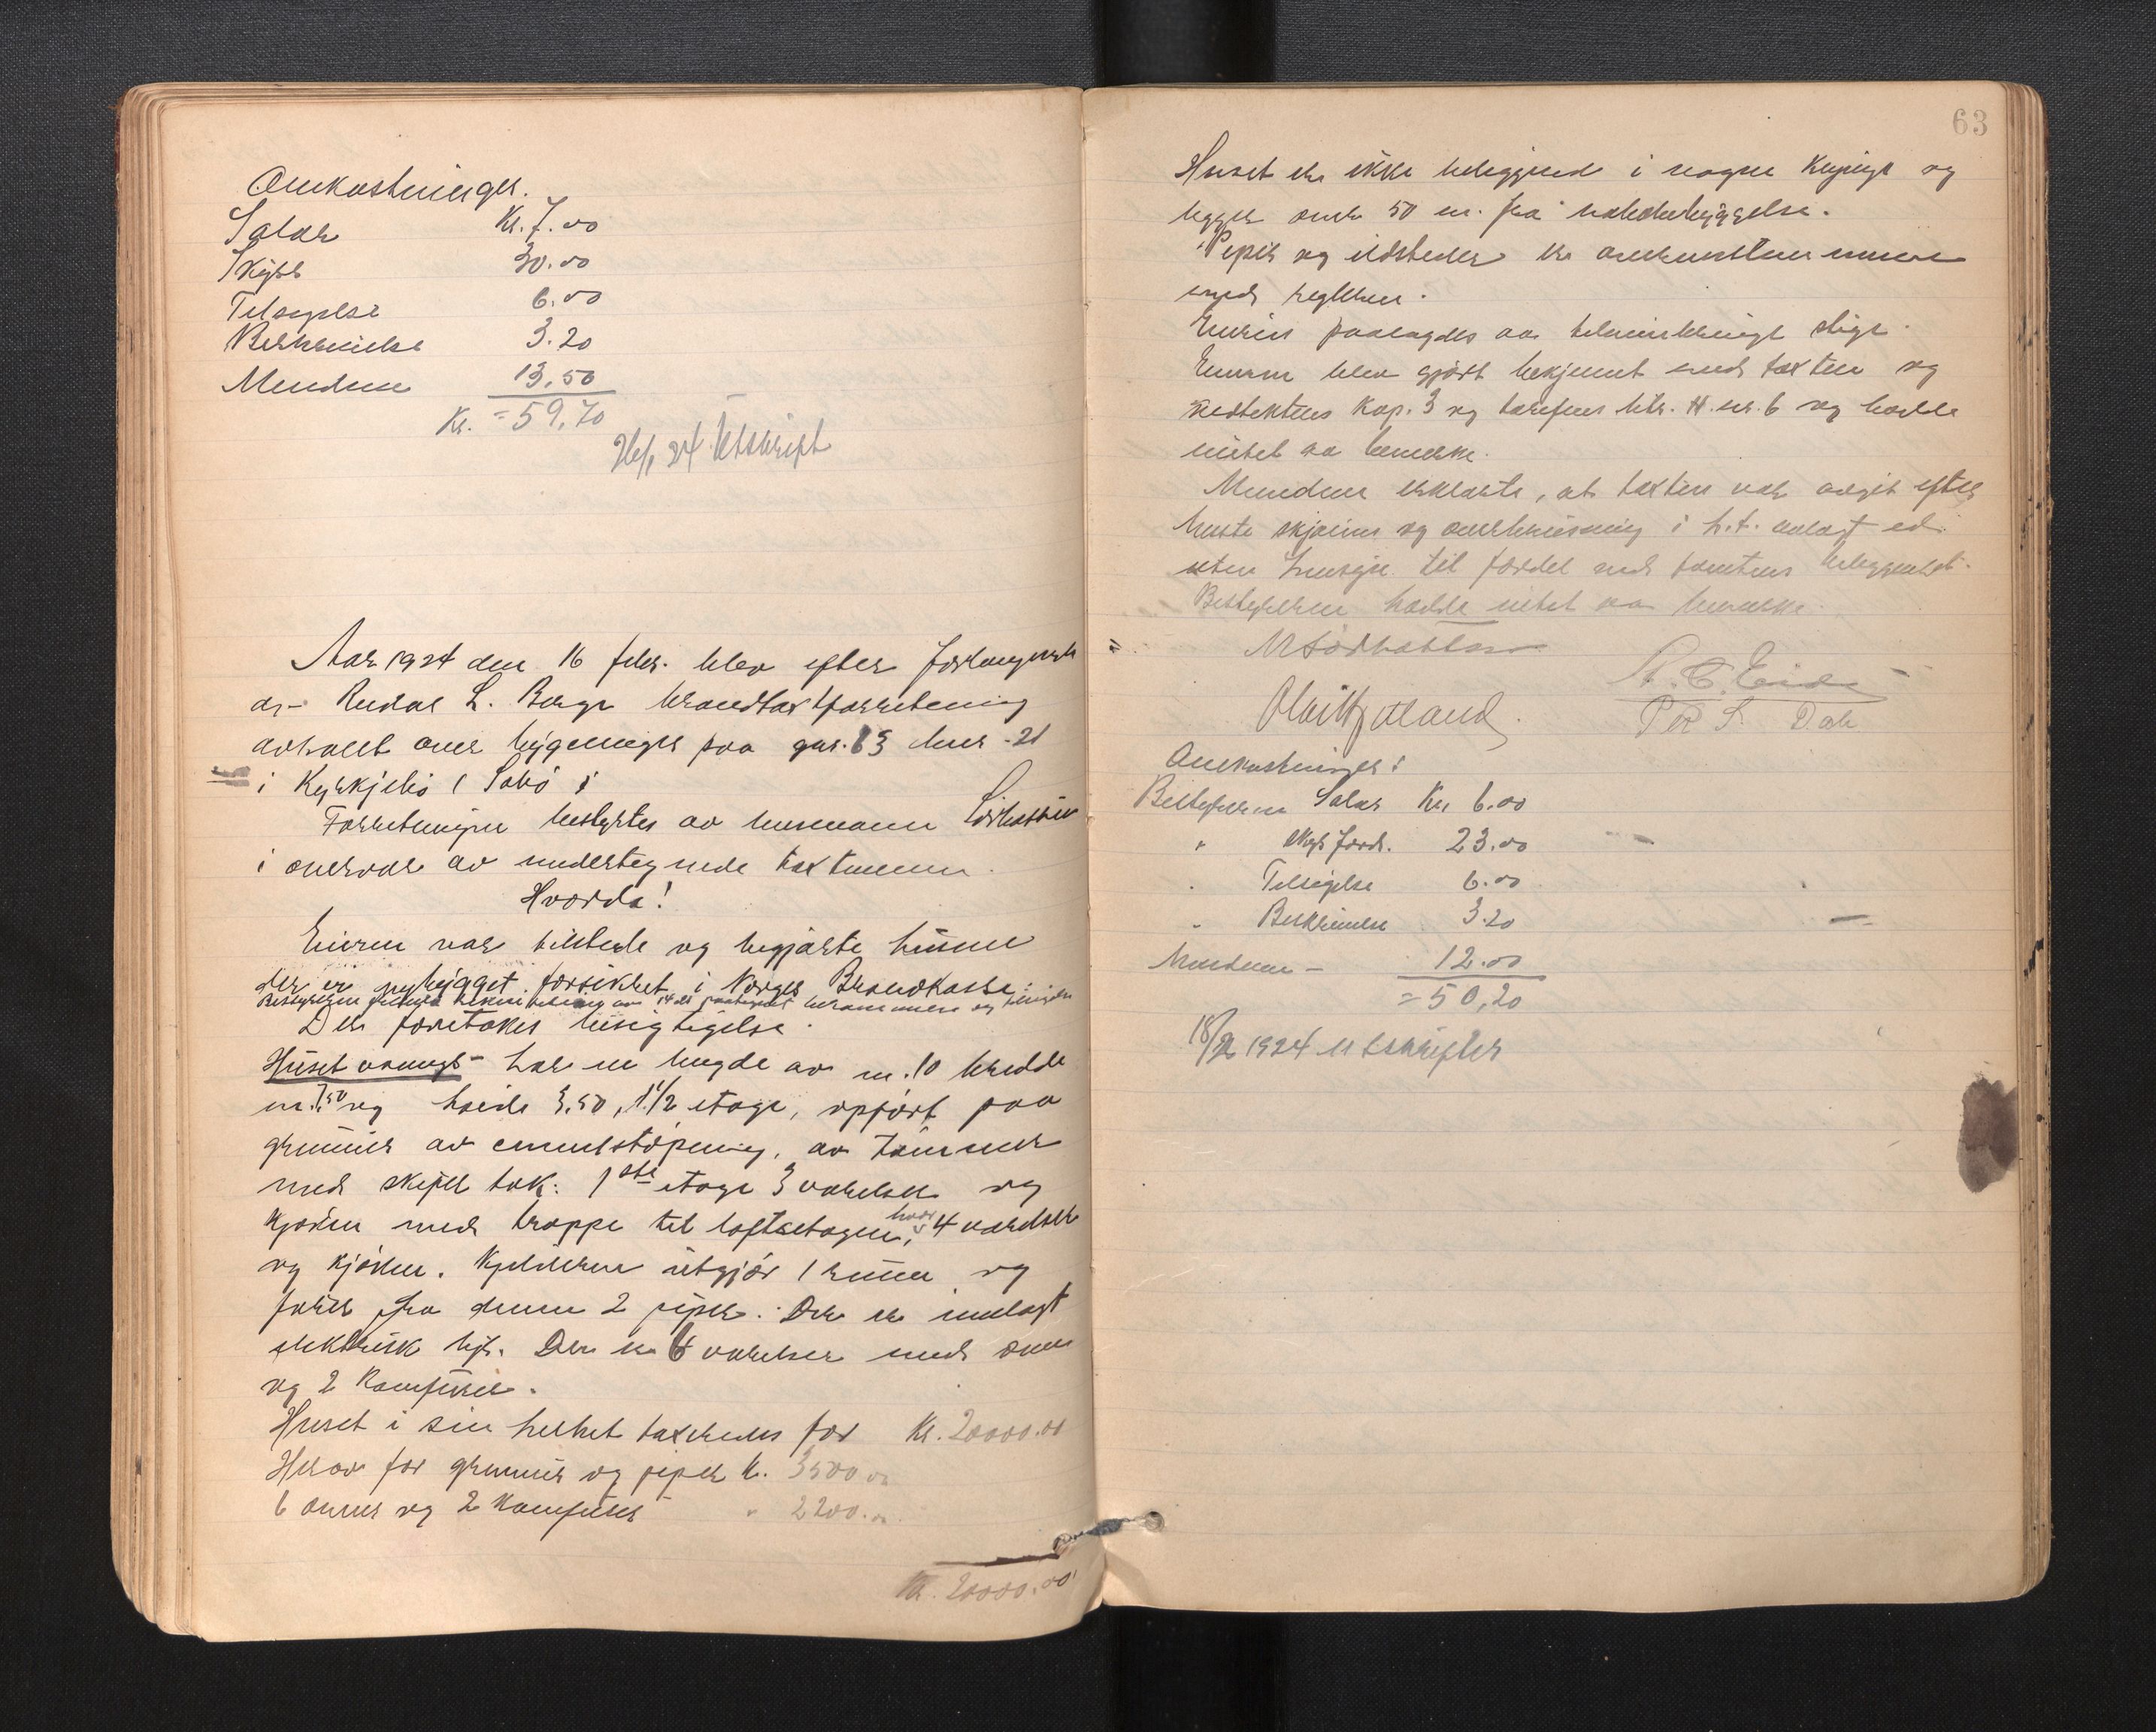 Omkostninger.
Salær Kr. 7.00
Skyds 30.00
Tilsigelse 6.00
Beskrivelse 3.20
Mendene 13,50
Kr. = 59,70
24 Utskrift
Aar 1924 den 16 febr. blev efter forlangende
av L. Berge brandtaxtforretning
avholdt over bygninger paa gnr. 63 bnr. 21
i Kyrkjebö i Sabö
Forretningen bestyrtes av lensmann Sörbotten
i overvær av undertegnede taxtmenn.
Hvorda!
Eieren var tilstede og begjærte husene
der er nybygget forsikret i Norges Brandkasse.
Bestyreren fremla
Der foretokes besigtigelse.
Huset vaanings- har en lengde av m. 10 bredde
m. 7.50 og høide 3,50, 1 1/2 etage, opført paa
grunmur av cementstøpning, av tømmer
med skifer tak. 1ste etage 3 værelser og
kjøken med trappe til loftsetagen, hvor 4 værelser
og kjøken. Kjelderen utgjør 1 rum og
fører fra denne 2 piper. Der er innlagt
elektrisk lys. Der er 6 værelser med ovn
og 2 komfurer.
Huset i sin helhet taxeredes for Kr. 20000.00
Herav for grunmur og piper kr. 3500.00
6 ovner og 2 komfurer " 2200.00
Kr. 20000.00
63
Huset er ikke beliggende i nogen klynge og
ligger over 50 m. fra nabobebyggelse.
Piper og ildsteder er overensstemmende
med reglene.
Eieren paalagdes aa stige.
Eieren blev gjort bekjennt med taxten og
vedtektens Kap. 3 og tariffens litr. H. nr. 6 og hadde
intet aa bemerke.
Mendene erklærte, at taxten var avgit efter
beste skjønn og overbevisning i h.t. avlagt ed
uten hensyn til fordel ved tomtens beliggenhet.
Bestyreren hadde intet aa bemerke.
M Sörbotten
A. C. Eide
Per S. Dale
Omkostninger:
Bestyreren Salær Kr. 6.00
" Skyds ford. 23.00
" Tilsigelse 6.00
" Beskrivelse 3.20
Mendene - 12.00
= 50,20
18/2 1924 utskrifter